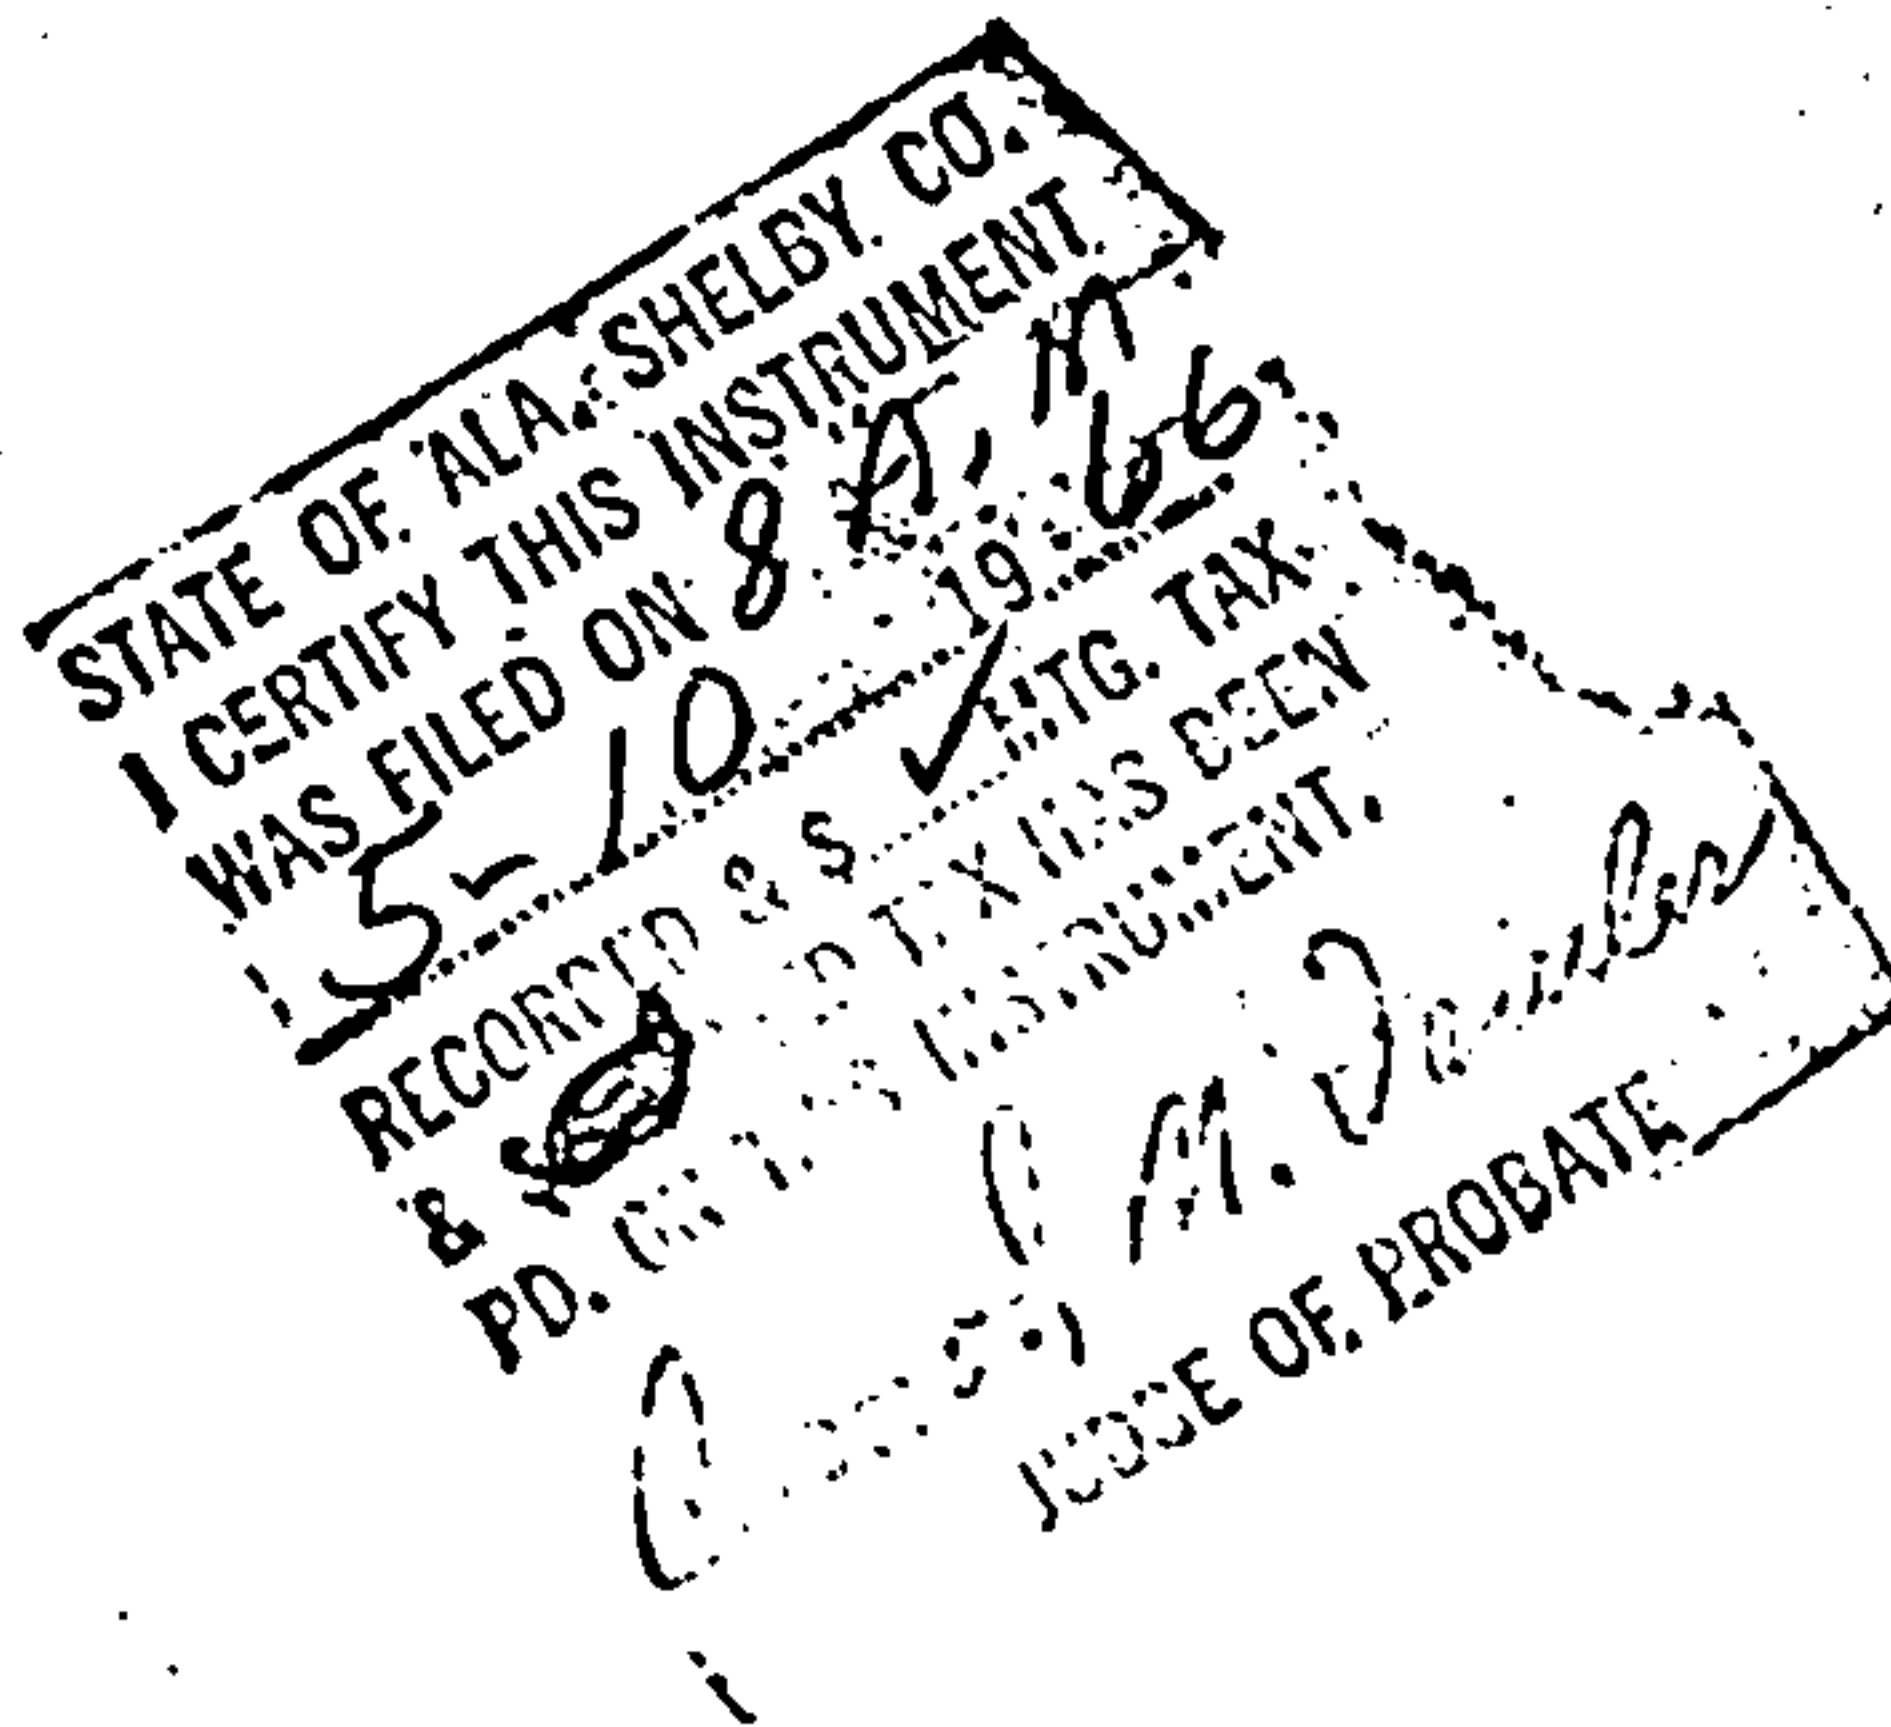 STATE OF ALA. SHELBY CO.
I CERTIFY THIS INSTRUMENT
WAS FILED ON 8 A. M
5-10 19 66
RECORDED & $ ✓ MTG. TAX
& $ TAX HAS BEEN
PD. ON THIS INSTRUMENT.
M.
JUDGE OF PROBATE